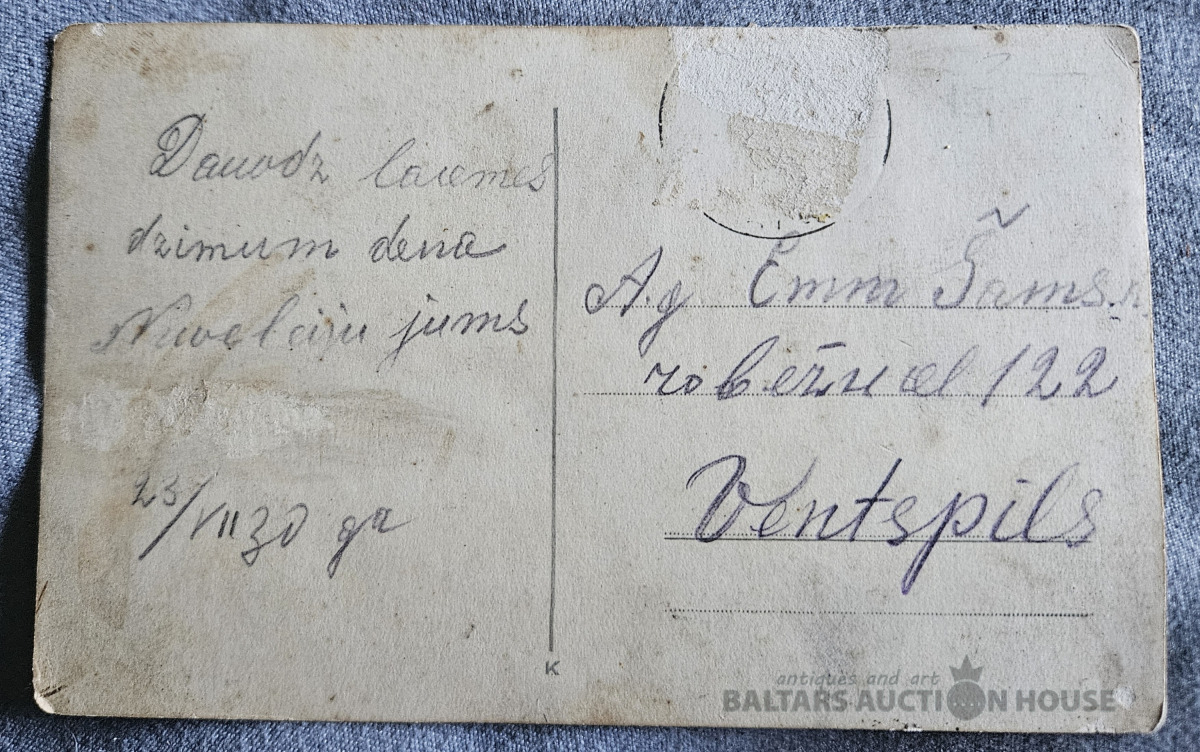 Dauodz laiemes
dzimum dena
Nuveleiju jums
23/VII 30 ga
A.g Emm Šams.
robežu iel 122
Ventspils
K
antiques and art
BALTARS AUCTION HOUSE